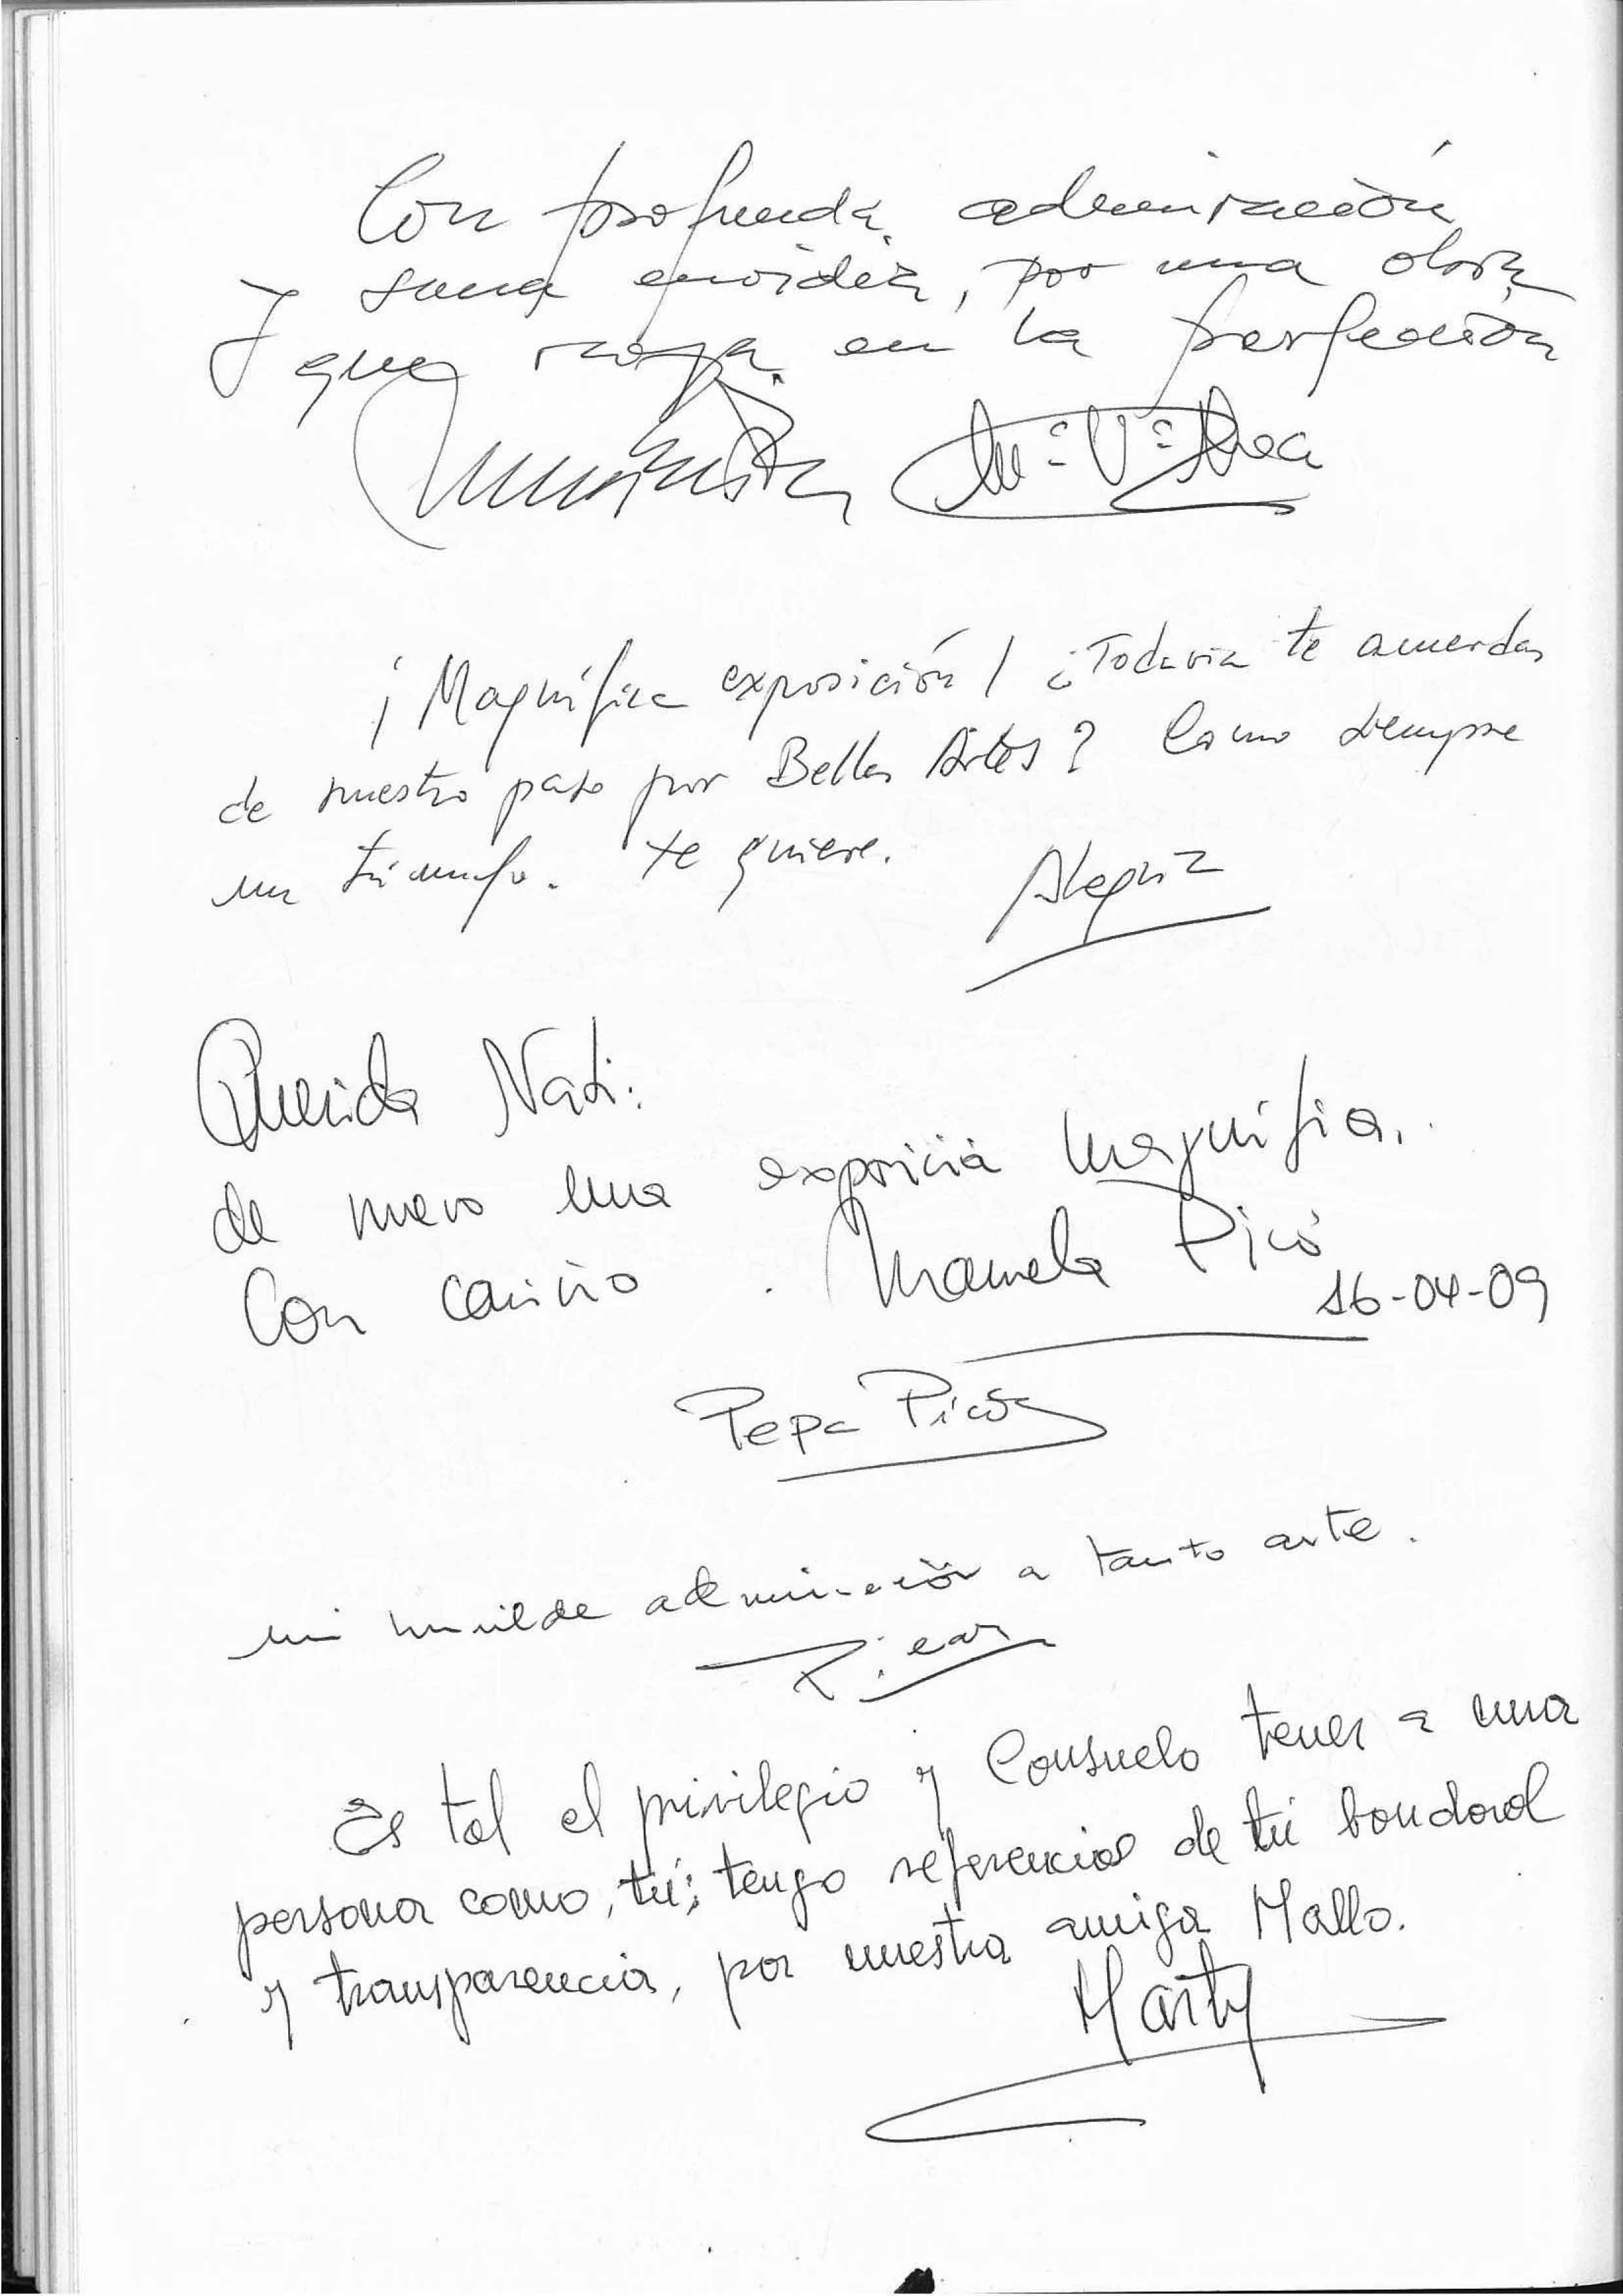 Con profunda admiración
y sana envidia, por una obra
que raya en la perfección
Mª Vª Rea
¡Magnífica exposición! ¿Todavia te acuerdas
de nuestro paso por Bellas Artes? Como siempre
un triunfo. te quiere.
Alegria
Querida Nati:
de nuevo una exposicia magnifia..
Con cariño. Manuela Picó
16-04-09
Pepa Picó
mi humilde admiración a tanto arte.
Es tal el privilegio y Consuelo tener a una
persona como, tú; tengo referencias de tú bondad
y transparencia, por nuestra amiga Mallo.
Marty